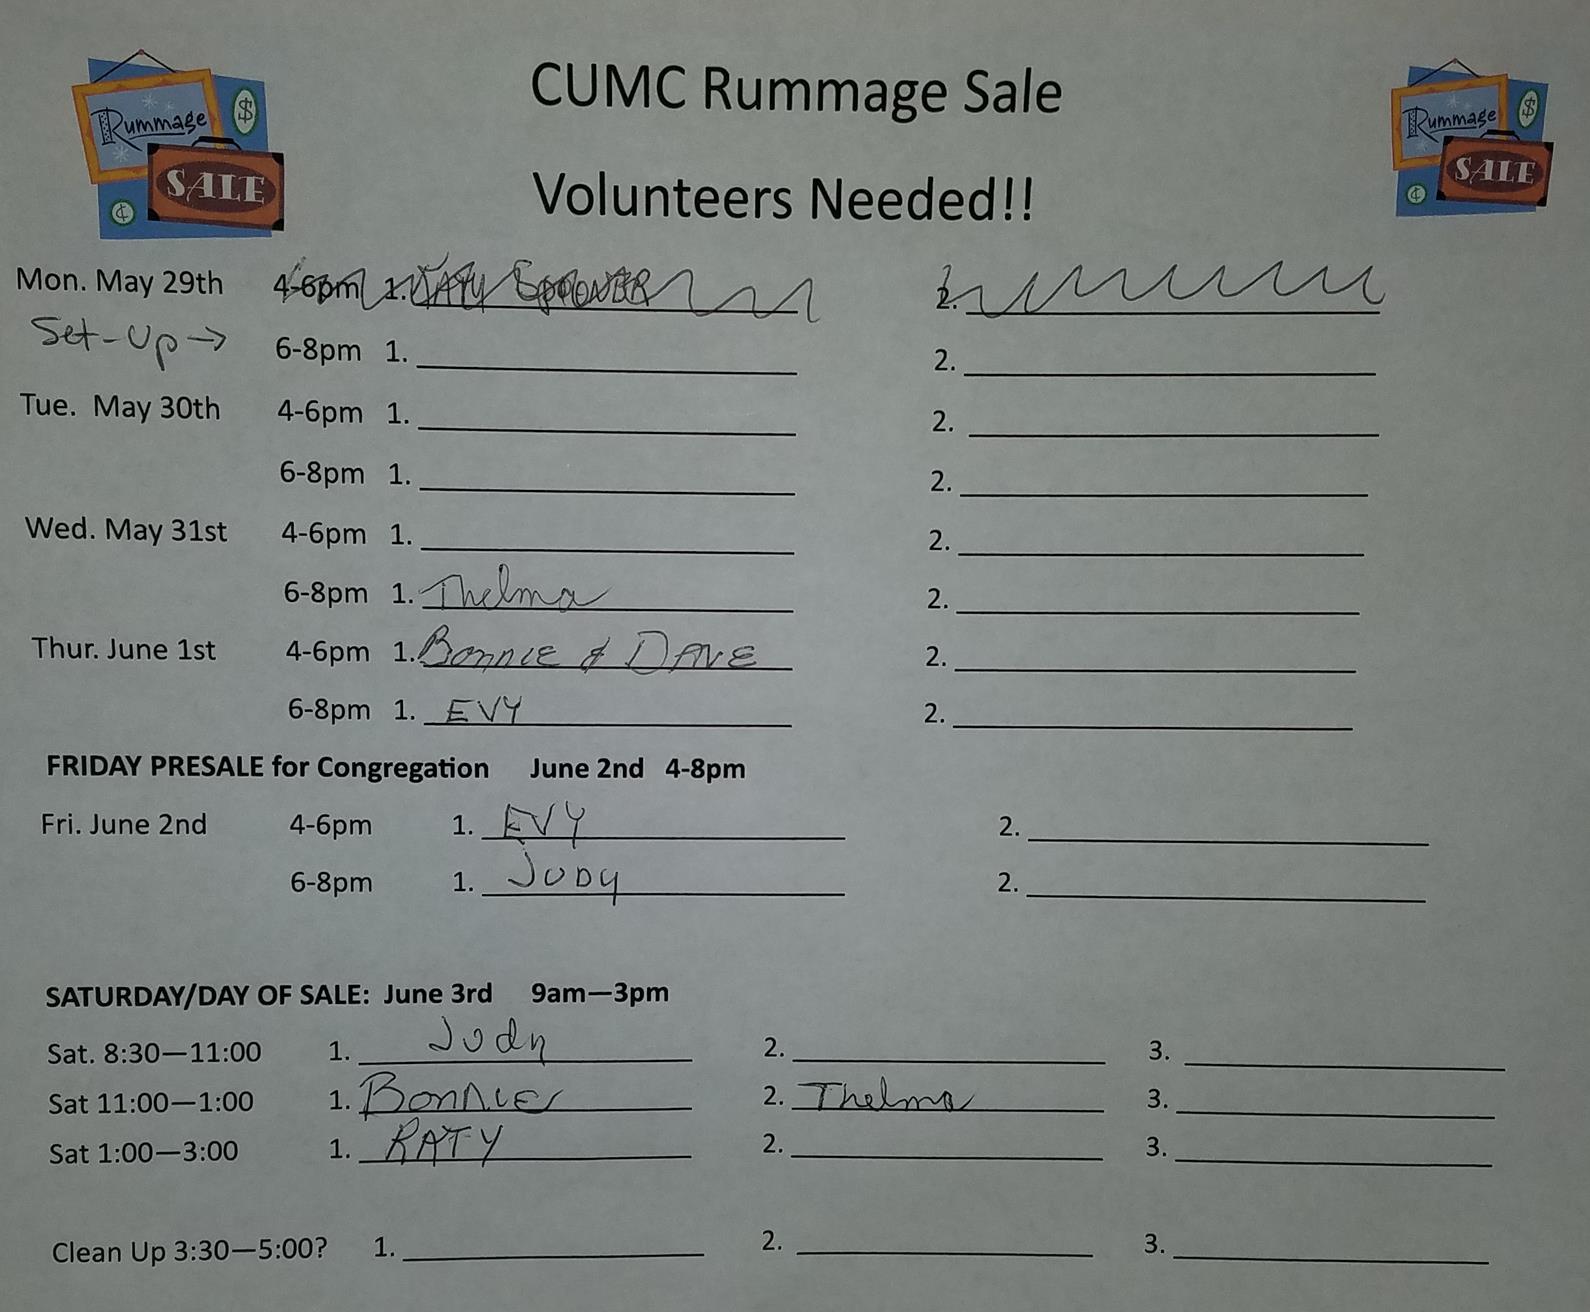 Rummage
$
SALE
¢
CUMC Rummage Sale
Volunteers Needed!!
Rummage
$
SALE
¢
Mon. May 29th 4-6pm 1. 2.
Set-Up → 6-8pm 1. 2.
Tue. May 30th 4-6pm 1. 2.
6-8pm 1. 2.
Wed. May 31st 4-6pm 1. 2.
6-8pm 1. Thelma 2.
Thur. June 1st 4-6pm 1. Bonnie & DAVE 2.
6-8pm 1. EVY 2.
FRIDAY PRESALE for Congregation June 2nd 4-8pm
Fri. June 2nd 4-6pm 1. EVY 2.
6-8pm 1. JUDY 2.
SATURDAY/DAY OF SALE: June 3rd 9am—3pm
Sat. 8:30—11:00 1. Judy 2. 3.
Sat 11:00—1:00 1. Bonnie 2. Thelma 3.
Sat 1:00—3:00 1. KATY 2. 3.
Clean Up 3:30—5:00? 1. 2. 3.